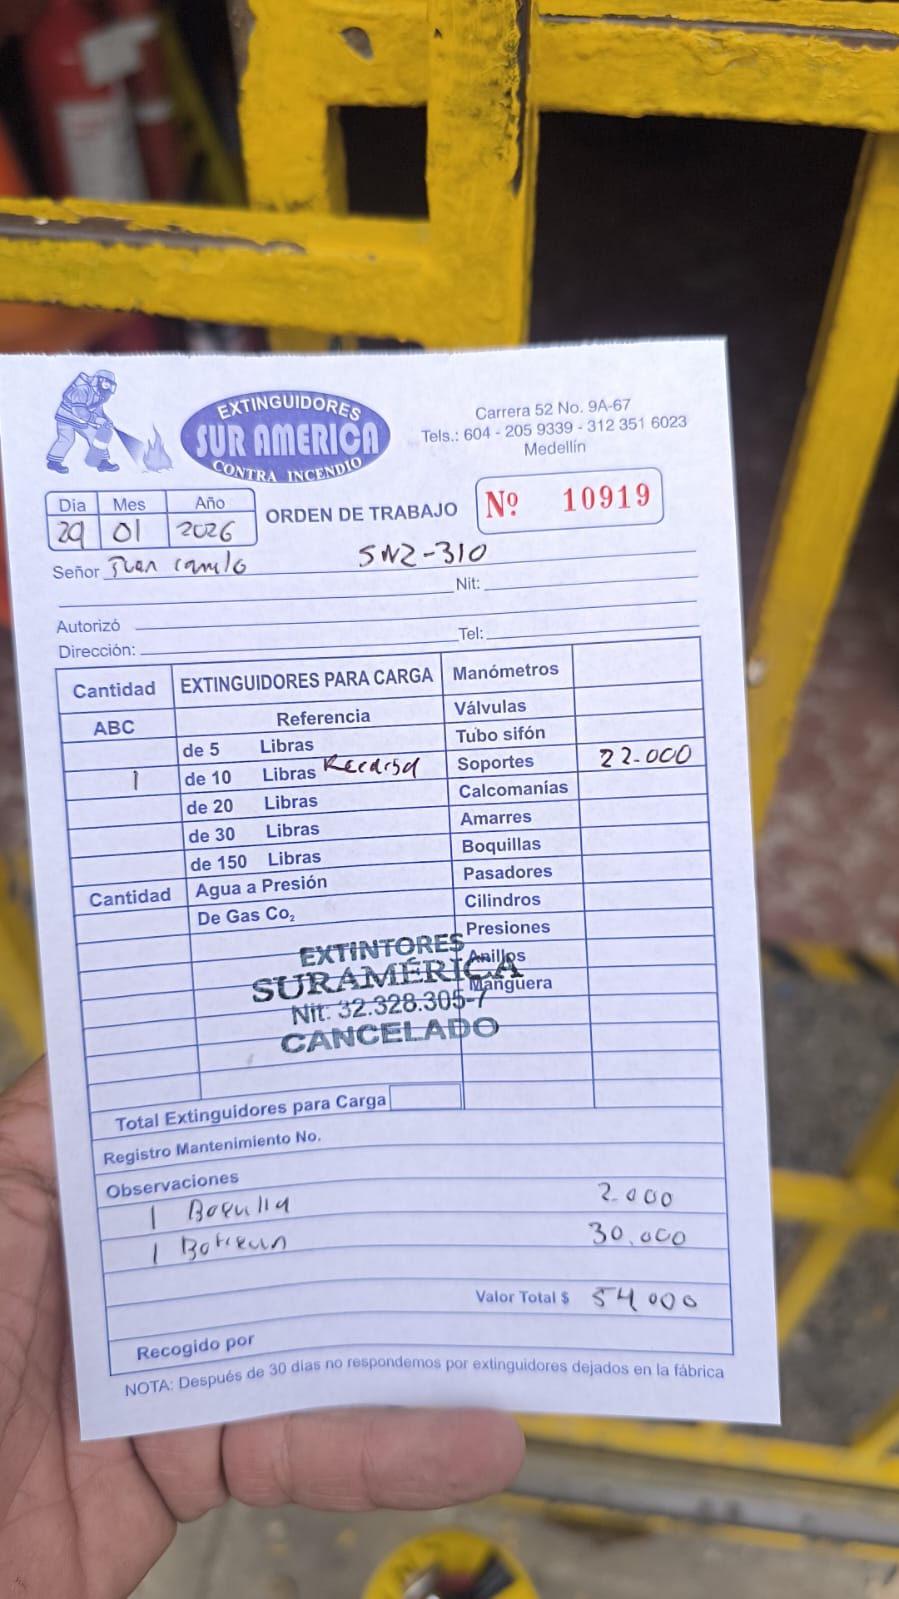 EXTINGUIDORES
SUR AMERICA
CONTRA INCENDIO
Carrera 52 No. 9A-67
Tels.: 604 - 205 9339 - 312 351 6023
Medellín
Día Mes Año
29 01 2026
ORDEN DE TRABAJO
Nº 10919
Señor Juan camilo SNZ-310
Nit:
Autorizó
Dirección: Tel:
Cantidad EXTINGUIDORES PARA CARGA Manómetros
ABC Referencia Válvulas
de 5 Libras Tubo sifón
1 de 10 Libras Recarga Soportes 22.000
de 20 Libras Calcomanías
de 30 Libras Amarres
de 150 Libras Boquillas
Cantidad Agua a Presión Pasadores
De Gas Co₂ Cilindros
Presiones
Anillos
Manguera
EXTINTORES
SURAMÉRICA
Nit: 32.328.305-7
CANCELADO
Total Extinguidores para Carga
Registro Mantenimiento No.
Observaciones
1 Boquilla 2.000
1 30.000
Valor Total $ 54000
Recogido por
NOTA: Después de 30 días no respondemos por extinguidores dejados en la fábrica